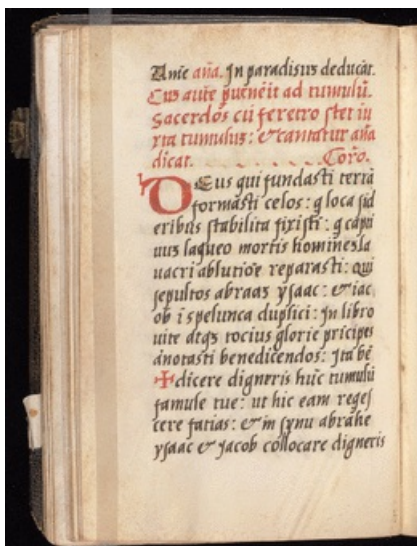 Amē aña. In paradisuʒ deducāt.
Cuʒ autē ꝑuenēit ad tumulū.
Sacerdos cū feretro stet iu
xta tumuluʒ: & cantatur aña
dicat. . . . . . . Coro.
DEus qui fundasti terrā
formasti celos: q̄ loca ſid
eribus ſtabilita fixiſti: q̄ capti
uuʒ laqueo mortis homineʒ la
uacri ablutiōe reparaſti: qui
ſepultos abraaʒ yſaac: & iac
ob ī ſpelunca duplici: In libro
uite atqʒ tocius glorie prīcipes
ānotaſti benedicendos: Ita bē
✠dicere digneris hūc tumulū
famule tue: ut hic eam regeſ
cere fatias: & in ſynu abrahe
yſaac & Jacob collocare digneris